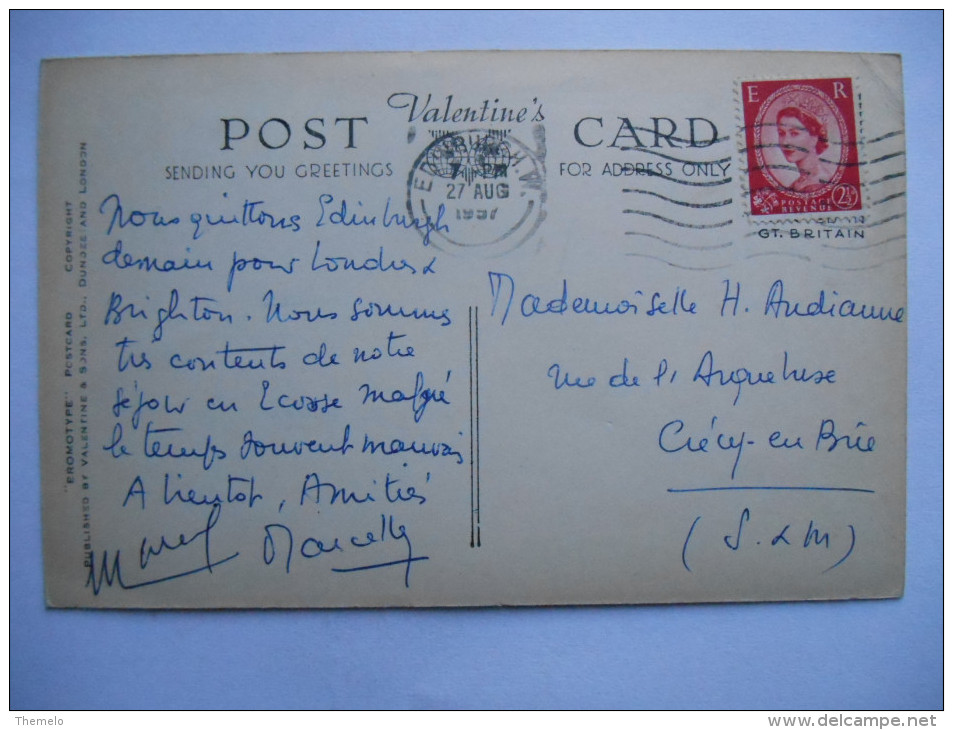 POST
Valentine's
CARD
SENDING YOU GREETINGS
FOR ADDRESS ONLY
EDINBURGH
27 AUG
E R
POSTAGE
REVENUE
2½
GT. BRITAIN
"BROMOTYPE" POSTCARD COPYRIGHT
PUBLISHED BY VALENTINE & SONS, LTD., DUNDEE AND LONDON
Nous quittons Edinburgh
demain pour Londres &
Brighton. Nous sommes
très contents de notre
séjour en Ecosse malgré
le temps souvent mauvais
A bientot, Amitiés
Marcel Marcelle
Mademoiselle H. Andianne
rue de l'Arquebuse
Crécy-en Brie
(S. & M)
Themelo
www.delcampe.net